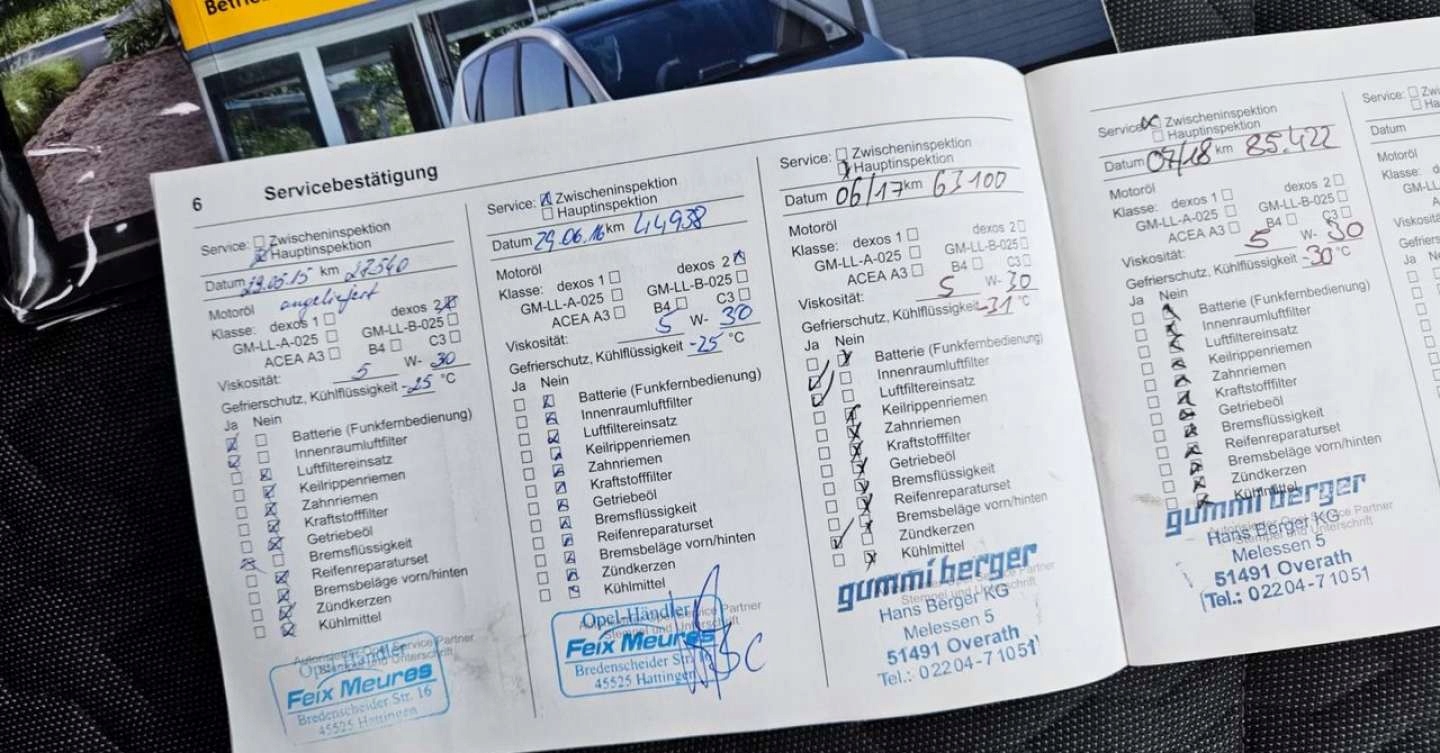 Betrie
6
Servicebestätigung
Service: Zwischeninspektion
Hauptinspektion
Datum 29.05.15 km 27.540
Motoröl angeliefert
Klasse: dexos 1 dexos 2
GM-LL-A-025 GM-LL-B-025
ACEA A3 B4 C3
Viskosität: 5 W- 30
Gefrierschutz, Kühlflüssigkeit -25 °C
Ja Nein
Batterie (Funkfernbedienung)
Innenraumluftfilter
Luftfiltereinsatz
Keilrippenriemen
Zahnriemen
Kraftstofffilter
Getriebeöl
Bremsflüssigkeit
Reifenreparaturset
Bremsbeläge vorn/hinten
Zündkerzen
Kühlmittel
Autorisierter Opel Service Partner
Stempel und Unterschrift
Opel-Händler
Feix Meures
Bredenscheider Str. 16
45525 Hattingen
Service: Zwischeninspektion
Hauptinspektion
Datum 29.06.16 km 44938
Motoröl
Klasse: dexos 1 dexos 2
GM-LL-A-025 GM-LL-B-025
ACEA A3 B4 C3
Viskosität: 5 W- 30
Gefrierschutz, Kühlflüssigkeit -25 °C
Ja Nein
Batterie (Funkfernbedienung)
Innenraumluftfilter
Luftfiltereinsatz
Keilrippenriemen
Zahnriemen
Kraftstofffilter
Getriebeöl
Bremsflüssigkeit
Reifenreparaturset
Bremsbeläge vorn/hinten
Zündkerzen
Kühlmittel
Opel-Händler
Service Partner
Stempel und Unterschrift
Feix Meures
Bredenscheider Str. 16
45525 Hattingen
Service: Zwischeninspektion
Hauptinspektion
Datum 06/17 km 63100
Motoröl
Klasse: dexos 1 dexos 2
GM-LL-A-025 GM-LL-B-025
ACEA A3 B4 C3
Viskosität: 5 W- 30
Gefrierschutz, Kühlflüssigkeit -31 °C
Ja Nein
Batterie (Funkfernbedienung)
Innenraumluftfilter
Luftfiltereinsatz
Keilrippenriemen
Zahnriemen
Kraftstofffilter
Getriebeöl
Bremsflüssigkeit
Reifenreparaturset
Bremsbeläge vorn/hinten
Zündkerzen
Kühlmittel
gummi berger
Service Partner
Stempel und Unterschrift
Hans Berger KG
Melessen 5
51491 Overath
Tel.: 02204-71051
Service: Zwischeninspektion
Hauptinspektion
Datum 07/18 km 85.422
Motoröl
Klasse: dexos 1 dexos 2
GM-LL-A-025 GM-LL-B-025
ACEA A3 B4 C3
Viskosität: 5 W- 30
Gefrierschutz, Kühlflüssigkeit -30 °C
Ja Nein
Batterie (Funkfernbedienung)
Innenraumluftfilter
Luftfiltereinsatz
Keilrippenriemen
Zahnriemen
Kraftstofffilter
Getriebeöl
Bremsflüssigkeit
Reifenreparaturset
Bremsbeläge vorn/hinten
Zündkerzen
Kühlmittel
gummi berger
Autorisierter Opel Service Partner
Stempel und Unterschrift
Hans Berger KG
Melessen 5
51491 Overath
Tel.: 02204-71051
Service: Zwi
Ha
Datum
Motoröl
Klasse:
GM-L
ACE
Viskosität
Gefriersc
Ja Ne